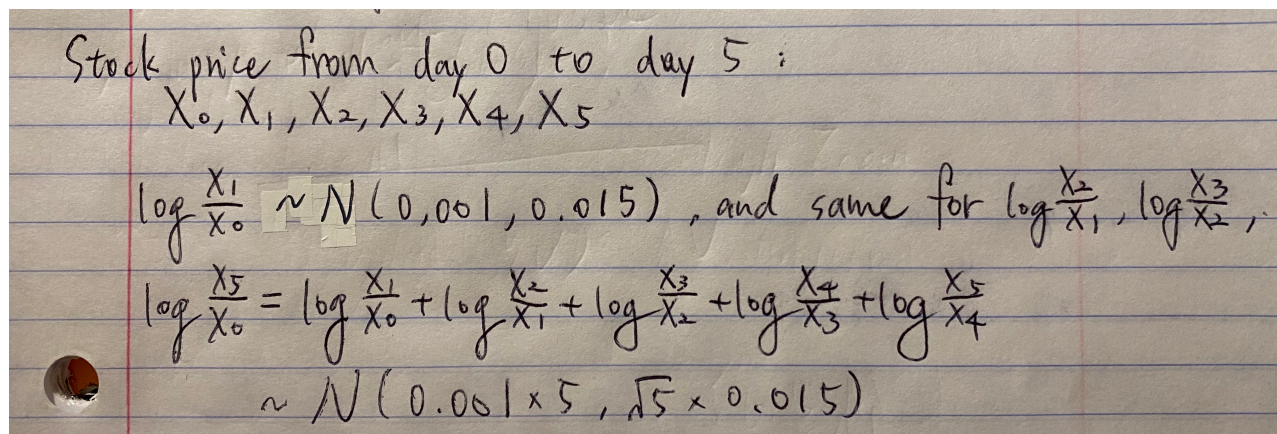 Stock price from day 0 to day 5 :
X₀, X₁, X₂, X₃, X₄, X₅
log X₁/X₀ ~ N(0,001, 0.015), and same for log X₂/X₁, log X₃/X₂, .
log X₅/X₀ = log X₁/X₀ + log X₂/X₁ + log X₃/X₂ + log X₄/X₃ + log X₅/X₄
~ N(0.001 × 5, √5 × 0.015)